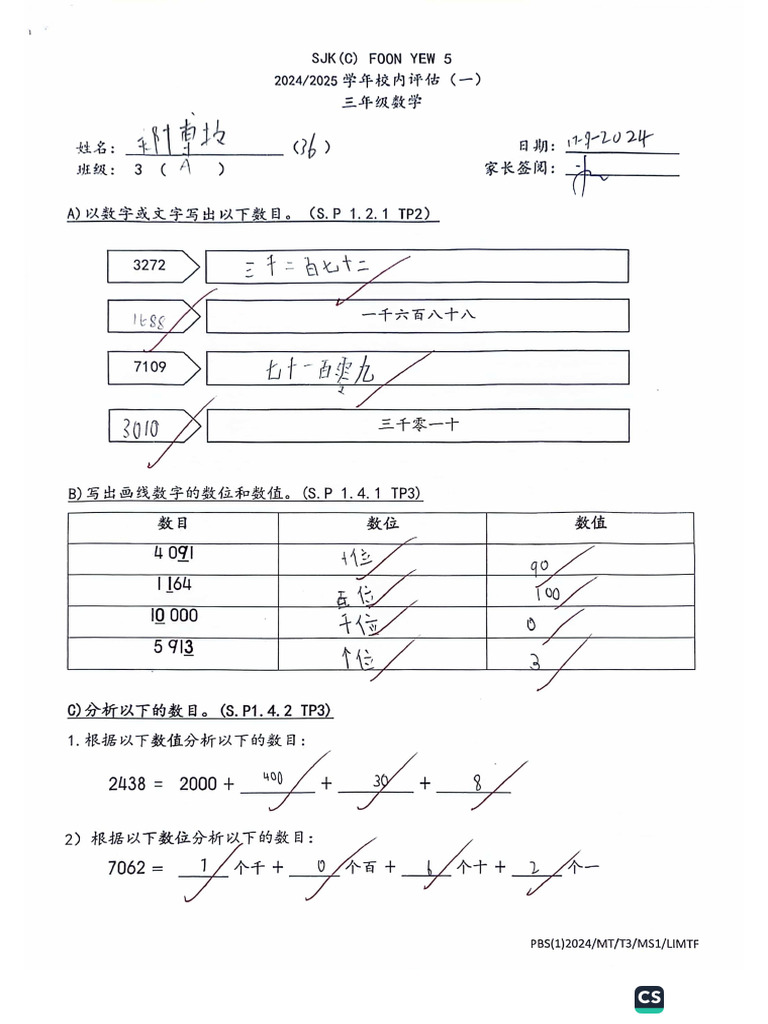 SJK(C) FOON YEW 5
2024/2025 学年校内评估（一）
三年级数学
姓名： (36) 日期： 17-9-2024
班级： 3 ( A ) 家长签阅：
A)以数字或文字写出以下数目。（S.P 1.2.1 TP2）
3272 三千二百七十二
1688 一千六百八十八
7109 七千一百零九
3010 三千零一十
B)写出画线数字的数位和数值。(S.P 1.4.1 TP3)
数目 数位 数值
4 091 十位 90
1 164 百位 100
10 000 千位 0
5 913 个位 3
C)分析以下的数目。(S.P1.4.2 TP3)
1.根据以下数值分析以下的数目：
2438 = 2000 + 400 + 30 + 8
2）根据以下数位分析以下的数目：
7062 = 7 个千 + 0 个百 + 6 个十 + 2 个一
PBS(1)2024/MT/T3/MS1/LIMTF
CS